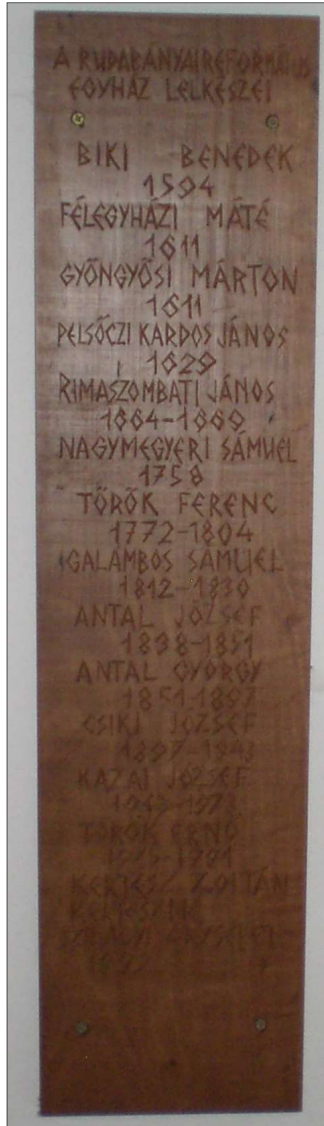 A RUDABÁNYAI REFORMÁTUS
EGYHÁZ LELKÉSZEI
BIKI BENEDEK
1594
FÉLEGYHÁZI MÁTÉ
1611
GYÖNGYÖSI MÁRTON
1611
PELSŐCZI KARDOS JÁNOS
1629
RIMASZOMBATI JÁNOS
1664-1669
NAGYMEGYERI SÁMUEL
1758
TÖRÖK FERENC
1772-1804
IGALAMBOS SÁMUEL
1812-1830
ANTAL JÓZSEF
1838-1851
ANTAL GYÖRGY
1851-1897
CSIKI JÓZSEF
1897-1943
KAZAI JÓZSEF
TÖRÖK ERNŐ
KERTÉSZ ZOLTÁN
SZILÁGYI ERZSÉBET
1992